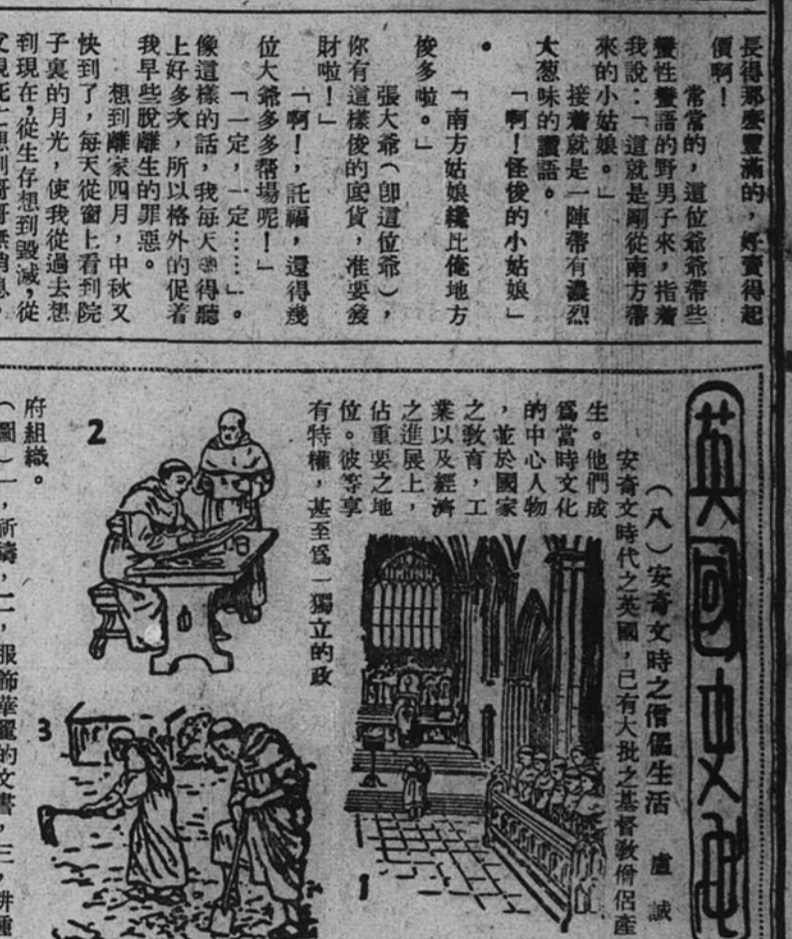 長得那麼豐滿的，好賣得起
價啊！
常常的，這位爺爺帶些
蠻性蠻語的野男子來，指着
我說：「這就是剛從南方帶
來的小姑娘。」
接着就是一陣帶有濃烈
大葱味的讚語。
「啊！怪俊的小姑娘」
。
「南方姑娘纔比俺地方
俊多啦。」
張大爺（卽這位爺），
你有這樣俊的底貨，准要發
財啦！」
「啊！，託福，還得幾
位大爺多多幫場呢！」
「一定，一定……」。
像這樣的話，我每天得聽
上好多次，所以格外的促着
我早些脫離生的罪惡。
想到離家四月，中秋又
快到了，每天從窗上看到院
子裏的月光，使我從過去想
到現在，從生存想到毀滅，從
父親死亡想到哥哥無消息，
英國文化
（八）安奇文時之僧侶生活
盧誠
安奇文時代之英國，已有大批之基督敎僧侶產
生。他們成
爲當時文化
的中心人物
，並於國家
之敎育，工
業以及經濟
之進展上，
佔重要之地
位。彼等享
有特權，甚至爲一獨立的政
府組織。
（圖）一，祈禱，二，服飾華麗的文書，三，耕種
1
2
3